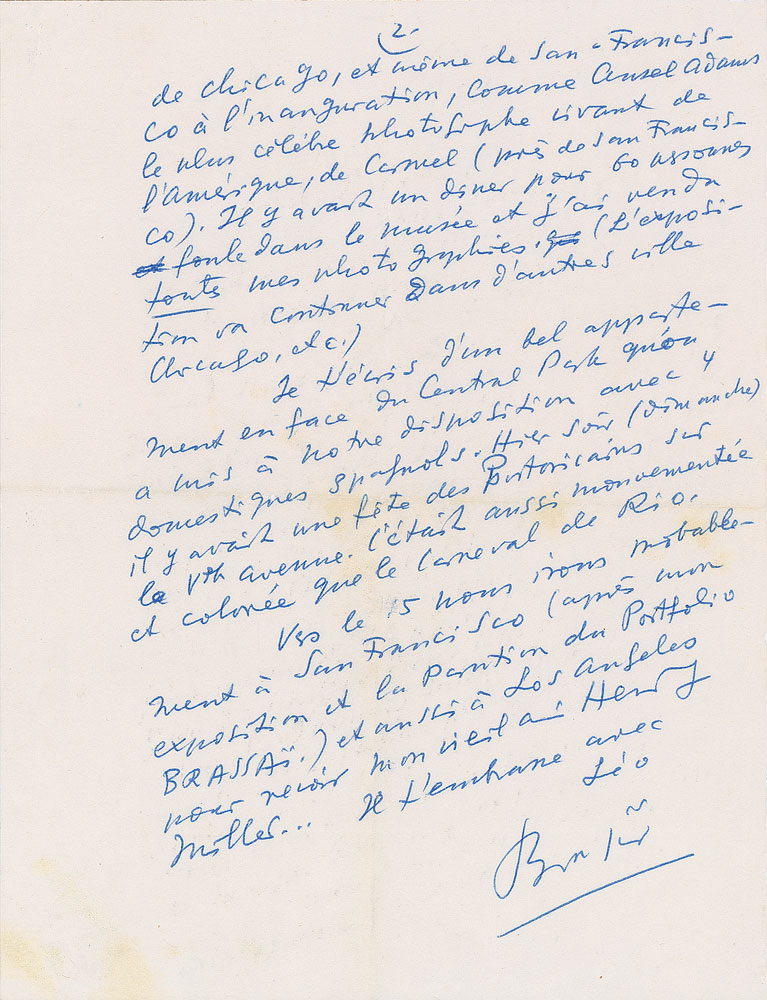 2.
de Chicago, et même de San-Francis-
co à l'inauguration, comme Ansel Adams
le plus célèbre photographe vivant de
l'Amérique, de Carmel (près de San Francis-
co). Il y avait un dîner pour 60 personnes
et foule dans le musée et j'ai vendu
touts mes photographies. (L'exposi-
tion va continuer dans d'autres ville
Chicago, etc.)
Je t'écris d'un bel apparte-
ment en face du Central Park qu'on
a mis à notre disposition avec 4
domestiques espagnols. Hier soir (dimanche)
il y avait une fête des Portoricains sur
la Vth avenue. C'était aussi mouvementée
et colorée que le Carneval de Rio.
Vers le 15 nous irons probable-
ment à San Francisco (après mon
exposition et la Parution du Portfolio
BRASSAÏ.) et aussi à Los Angeles
pour revoir mon vieil ami Henry
Miller... Je t'embrasse avec
Brassaï